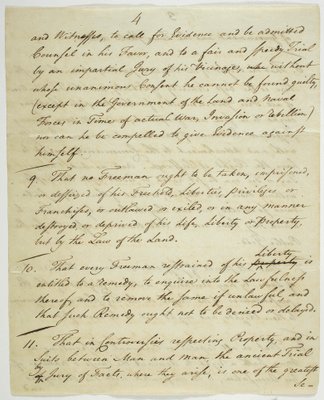 4
and Witnesses, to call for Evidence and be admitted
Counsel in his Favor, and to a fair and speedy Trial
by an impartial Jury of his Vicinage, without
whose unanimous Consent he cannot be found guilty,
(except in the Government of the Land and Naval
Forces in Times of actual War, Invasion or Rebellion)
nor can he be compelled to give Evidence against
himself.
9. That no Freeman ought to be taken, imprisoned,
or disseized of his Freehold, Liberties, Privileges or
Franchises, or outlawed or exiled, or in any manner
destroyed or deprived of his Life, Liberty or Property,
but by the Law of the Land.
Liberty
10. That every Freeman restrained of his Property is
entitled to a Remedy, to enquire into the Lawfulness
thereof, and to remove the same if unlawful, and
that such Remedy ought not to be denied or delayed.
11. That in Controversies respecting Property, and in
Suits between Man and man, the ancient Trial
by Jury of Facts, where they arise, is one of the greatest
Se-